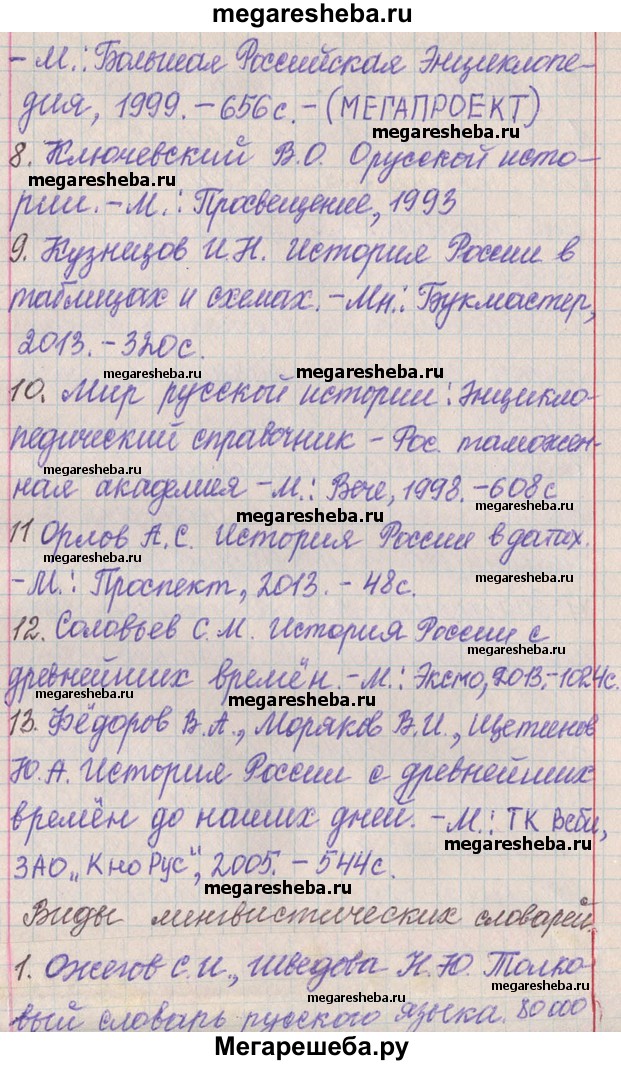 megaresheba.ru
– М.: Большая Российская Энциклопе–
дия, 1999. – 656 с. – (МЕГАПРОЕКТ)
megaresheba.ru
8. Ключевский В.О. О русской исто–
megaresheba.ru
рии. – М.: Просвещение, 1993
megaresheba.ru
9. Кузнецов И.Н. История России в
таблицах и схемах. – Мн.: Букмастер,
2013. – 320с.
megaresheba.ru
megaresheba.ru
megaresheba.ru
10. Мир русской истории: Энцикло–
педический справочник – Рос. таможен–
megaresheba.ru
ная академия – М.: Вече, 1998. – 608 с
megaresheba.ru
megaresheba.ru
11 Орлов А.С. История России в датах.
– М.: Проспект, 2013. – 48с.
megaresheba.ru
12. Соловьев С.М. История России с
древнейших времён. – М.: Эксмо, 2013. – 1024с.
megaresheba.ru
megaresheba.ru
megaresheba.ru
13. Фёдоров В.А., Моряков В.И., Щетинов
Ю.А. История России с древнейших
времён до наших дней. – М.: ТК Велби,
megaresheba.ru
ЗАО „КноРус", 2005. – 544с.
megaresheba.ru
Виды лингвистических словарей.
megaresheba.ru
1. Ожегов С.И., Шведова Н.Ю. Толко–
megaresheba.ru
вый словарь русского языка. 80 000
Мегарешеба.ру